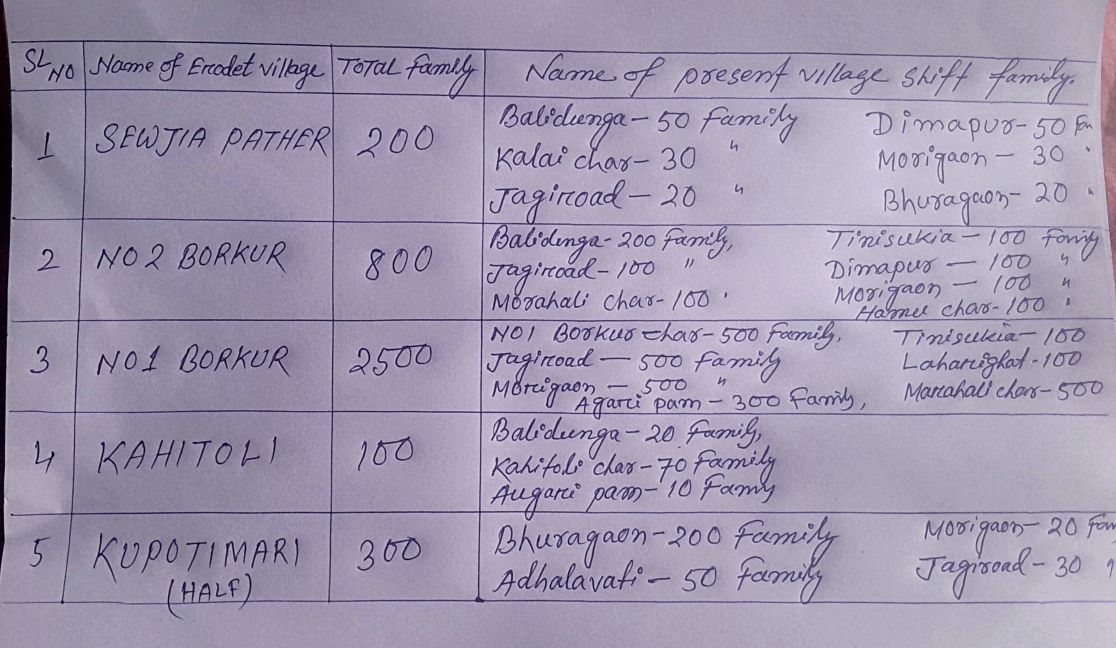 SL NO Name of Erodet village Total family Name of present village shift family.
1 SEWJIA PATHER 200 Balidunga - 50 Family Dimapur - 50 Fm
Kalai char - 30 " Morigaon - 30 "
Jagiroad - 20 " Bhuragaon - 20 "
2 NO 2 BORKUR 800 Balidunga - 200 Family, Tinisukia - 100 Family
Jagiroad - 100 " Dimapur - 100 "
Morahali char - 100 " Morigaon - 100 "
Hamu char - 100 "
3 NO 1 BORKUR 2500 NO1 Borkur char - 500 Family, Tinisukia - 100
Jagiroad - 500 Family Laharighat - 100
Morigaon - 500 " Marahali char - 500
Agari pam - 300 Family,
4 KAHITOLI 100 Balidunga - 20 Family,
Kahitoli char - 70 Family
Augari pam - 10 Famy
5 KUPOTIMARI 300 Bhuragaon - 200 Family Morigaon - 20 Fam
(HALF) Adhalavati - 50 Family Jagiroad - 30 "